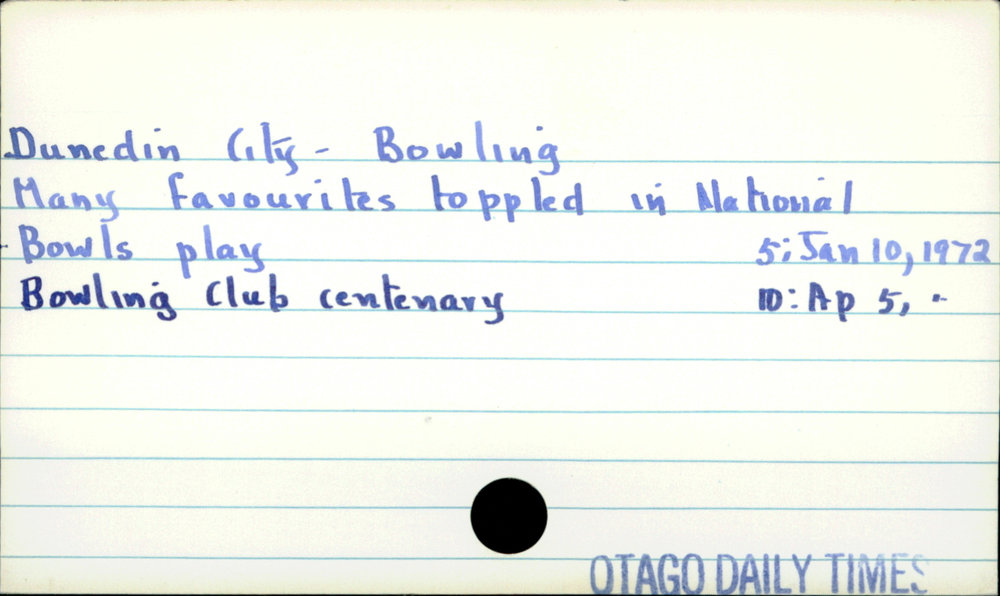 Dunedin City - Bowling
Many favourites toppled in National
- Bowls play 5; Jan 10, 1972
Bowling Club centenary 10: Ap 5, "
OTAGO DAILY TIMES